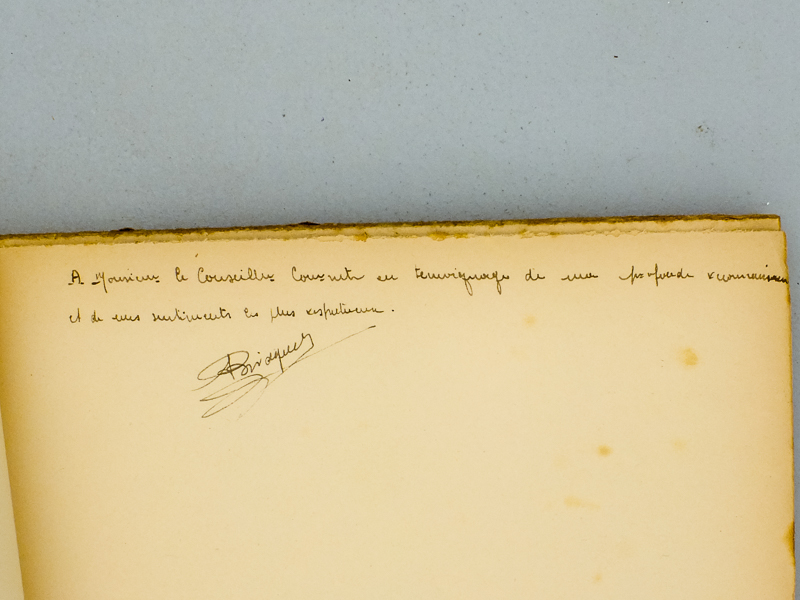 A Monsieur le Conseiller Cournet en temoignage de ma profonde reconnaissance
et de mes sentiments les plus respectueux.